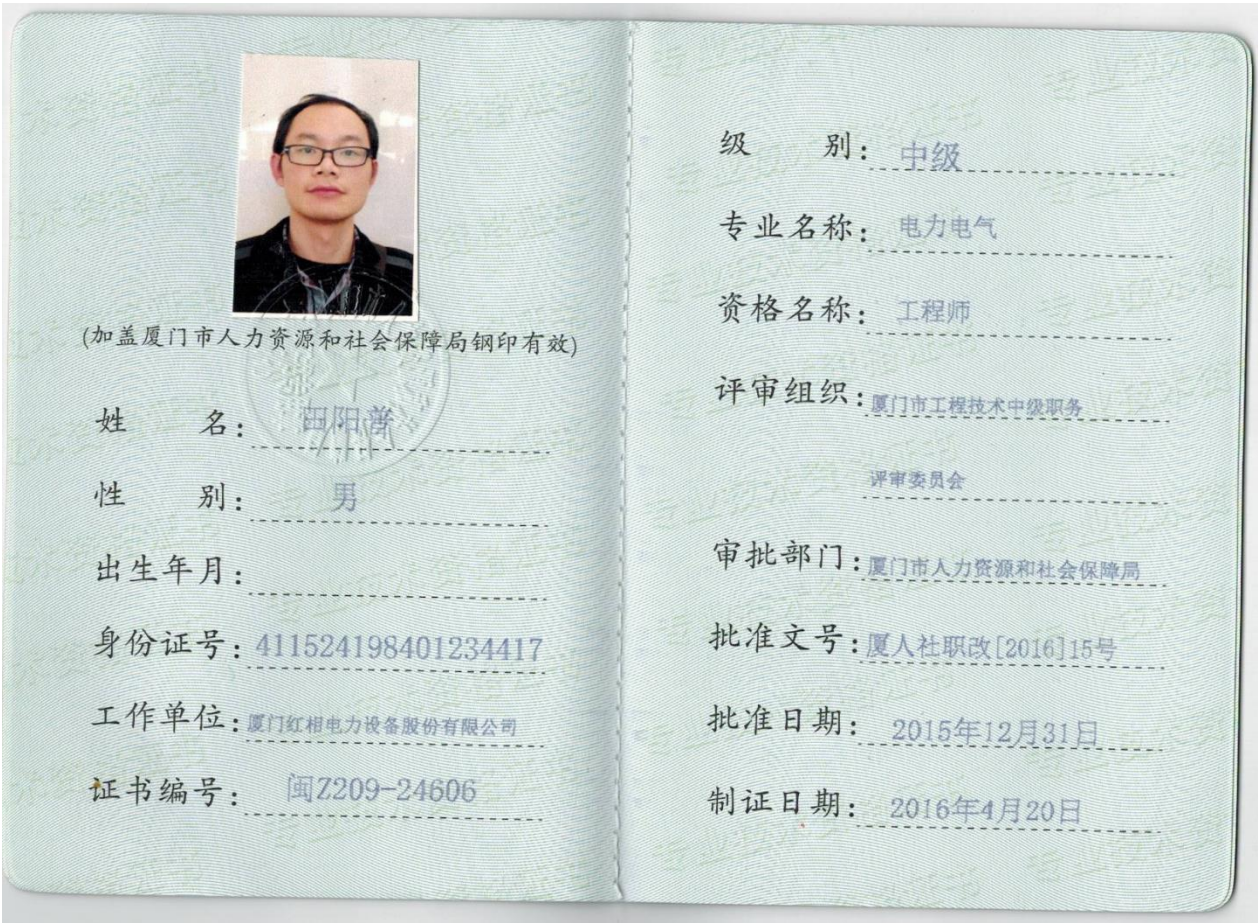 (加盖厦门市人力资源和社会保障局钢印有效)
姓 名: 田阳普
性 别: 男
出生年月:
身份证号: 411524198401234417
工作单位: 厦门红相电力设备股份有限公司
证书编号: 闽Z209-24606
级 别: 中级
专业名称: 电力电气
资格名称: 工程师
评审组织: 厦门市工程技术中级职务
评审委员会
审批部门: 厦门市人力资源和社会保障局
批准文号: 厦人社职改[2016]15号
批准日期: 2015年12月31日
制证日期: 2016年4月20日